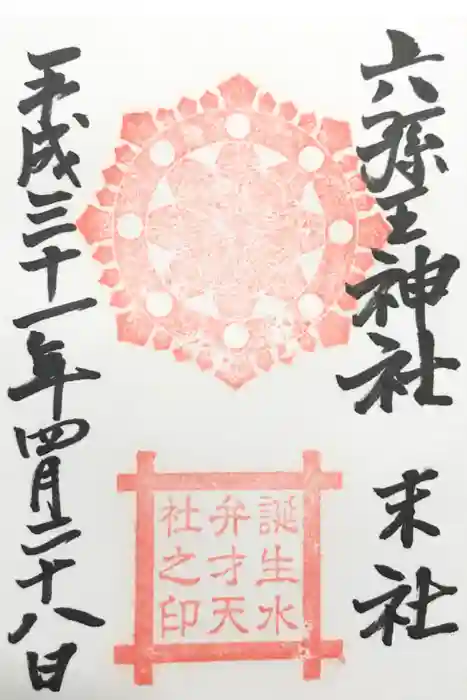 六孫王神社 末社
誕生水
弁才天
社之印
平成三十一年四月二十八日